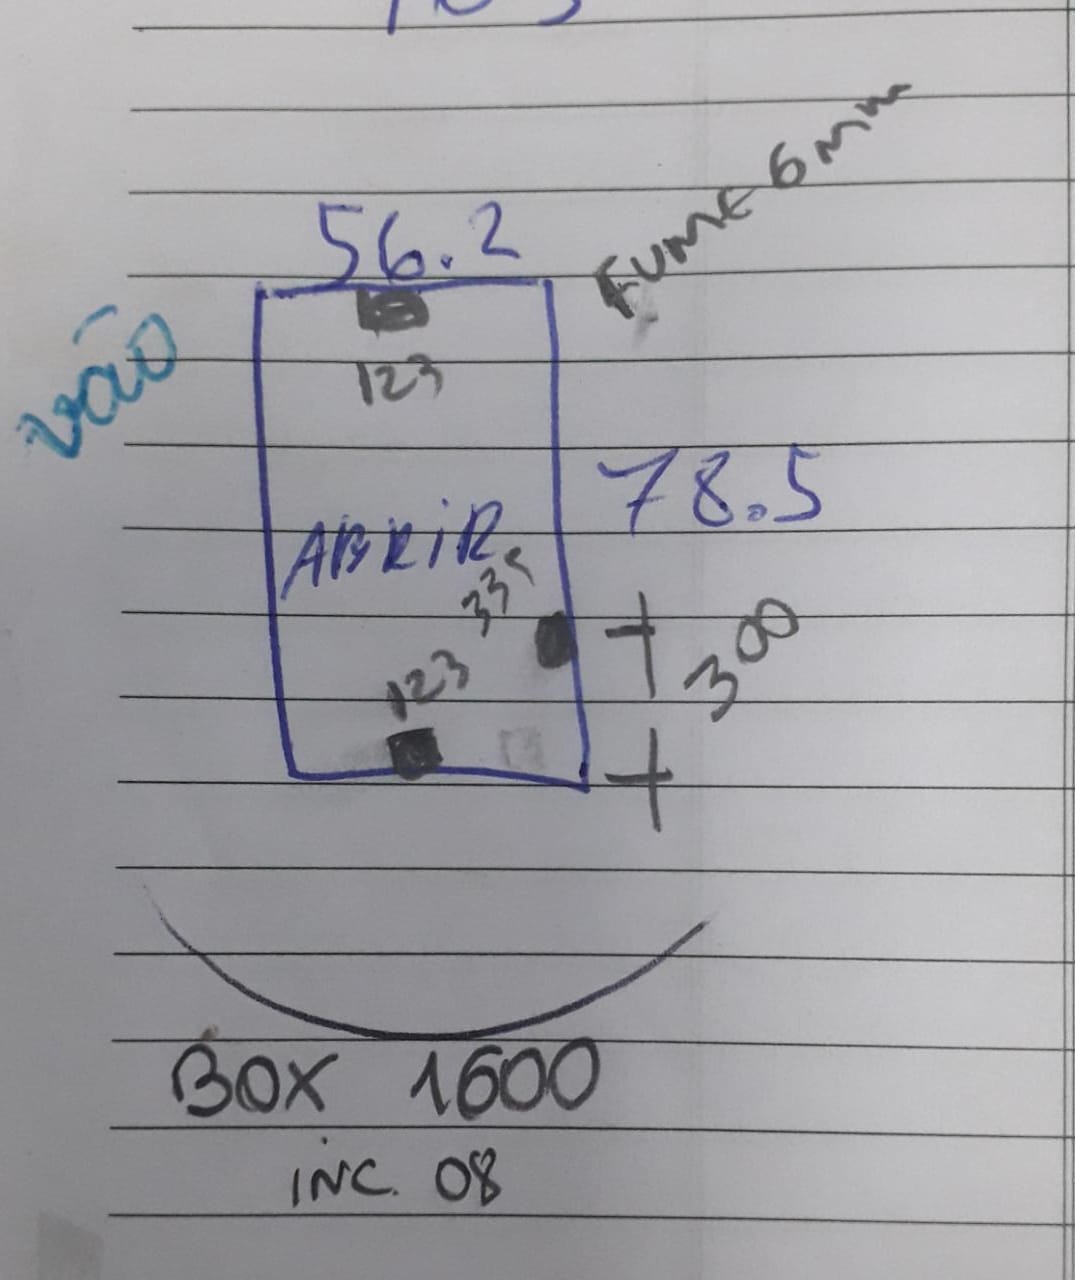 56.2
FUME 6mm
vão
123
78.5
ABRIR
335
300
123
BOX 1600
INC. 08